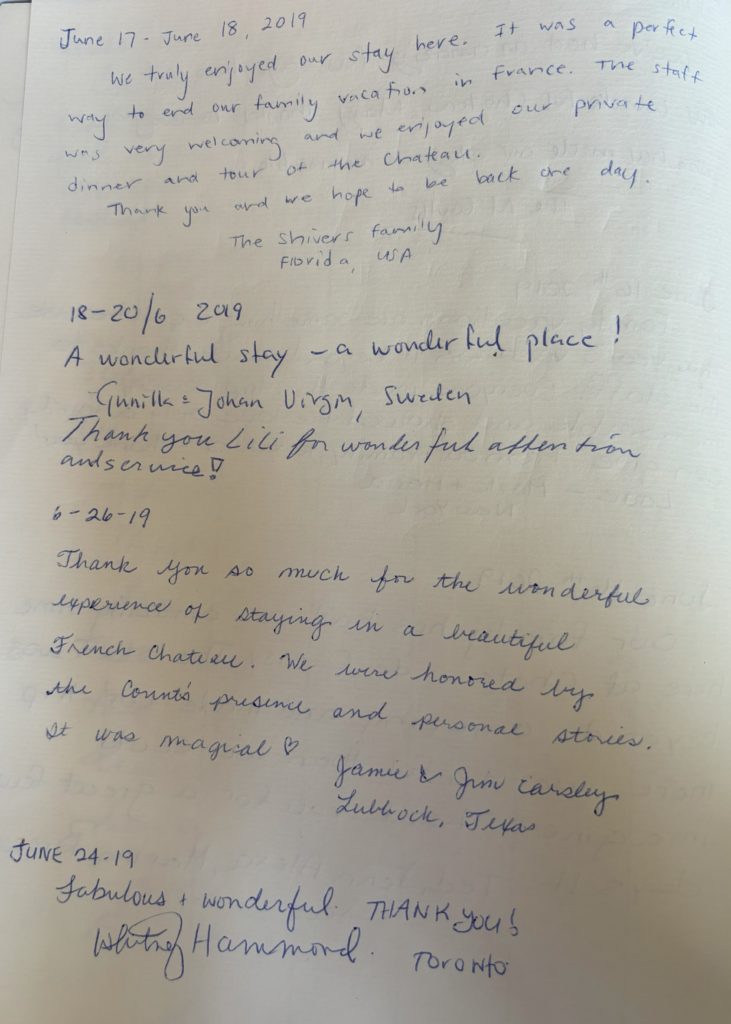 June 17 - June 18, 2019
We truly enjoyed our stay here. It was a perfect
way to end our family vacation in France. The staff
was very welcoming and we enjoyed our private
dinner and tour of the Chateau.
Thank you and we hope to be back one day.
The Shivers Family
Florida, USA
18-20/6 2019
A wonderful stay – a wonderful place!
Gunilla & Johan Virgin, Sweden
Thank you Lili for wonderful attention
and service!
6-26-19
Thank you so much for the wonderful
experience of staying in a beautiful
French Chateau. We were honored by
the Count's presence and personal stories.
It was magical ♡
Jamie & Jim
Lubbock, Texas
JUNE 24-19
Fabulous + wonderful. THANK YOU!
Whitney Hammond.
TORONTO